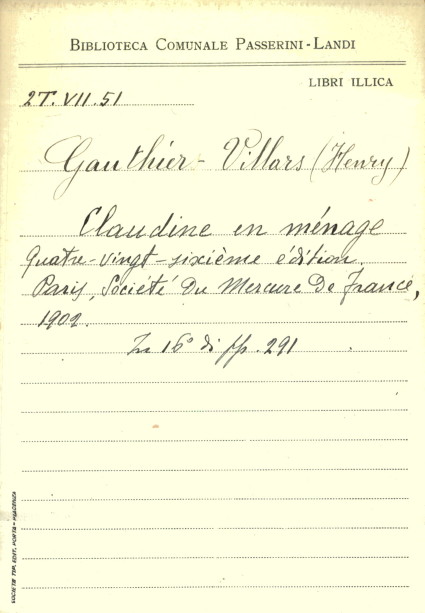 BIBLIOTECA COMUNALE PASSERINI-LANDI
LIBRI ILLICA
2T.VII.51
Gauthier-Villars (Henry)
Claudine en ménage
Quatre-vingt-sixième édition.
Paris, Société du Mercure de France,
1902.
In 16° di pp. 291
SOCIETÀ TIP. EDIT. PORTA - PIACENZA